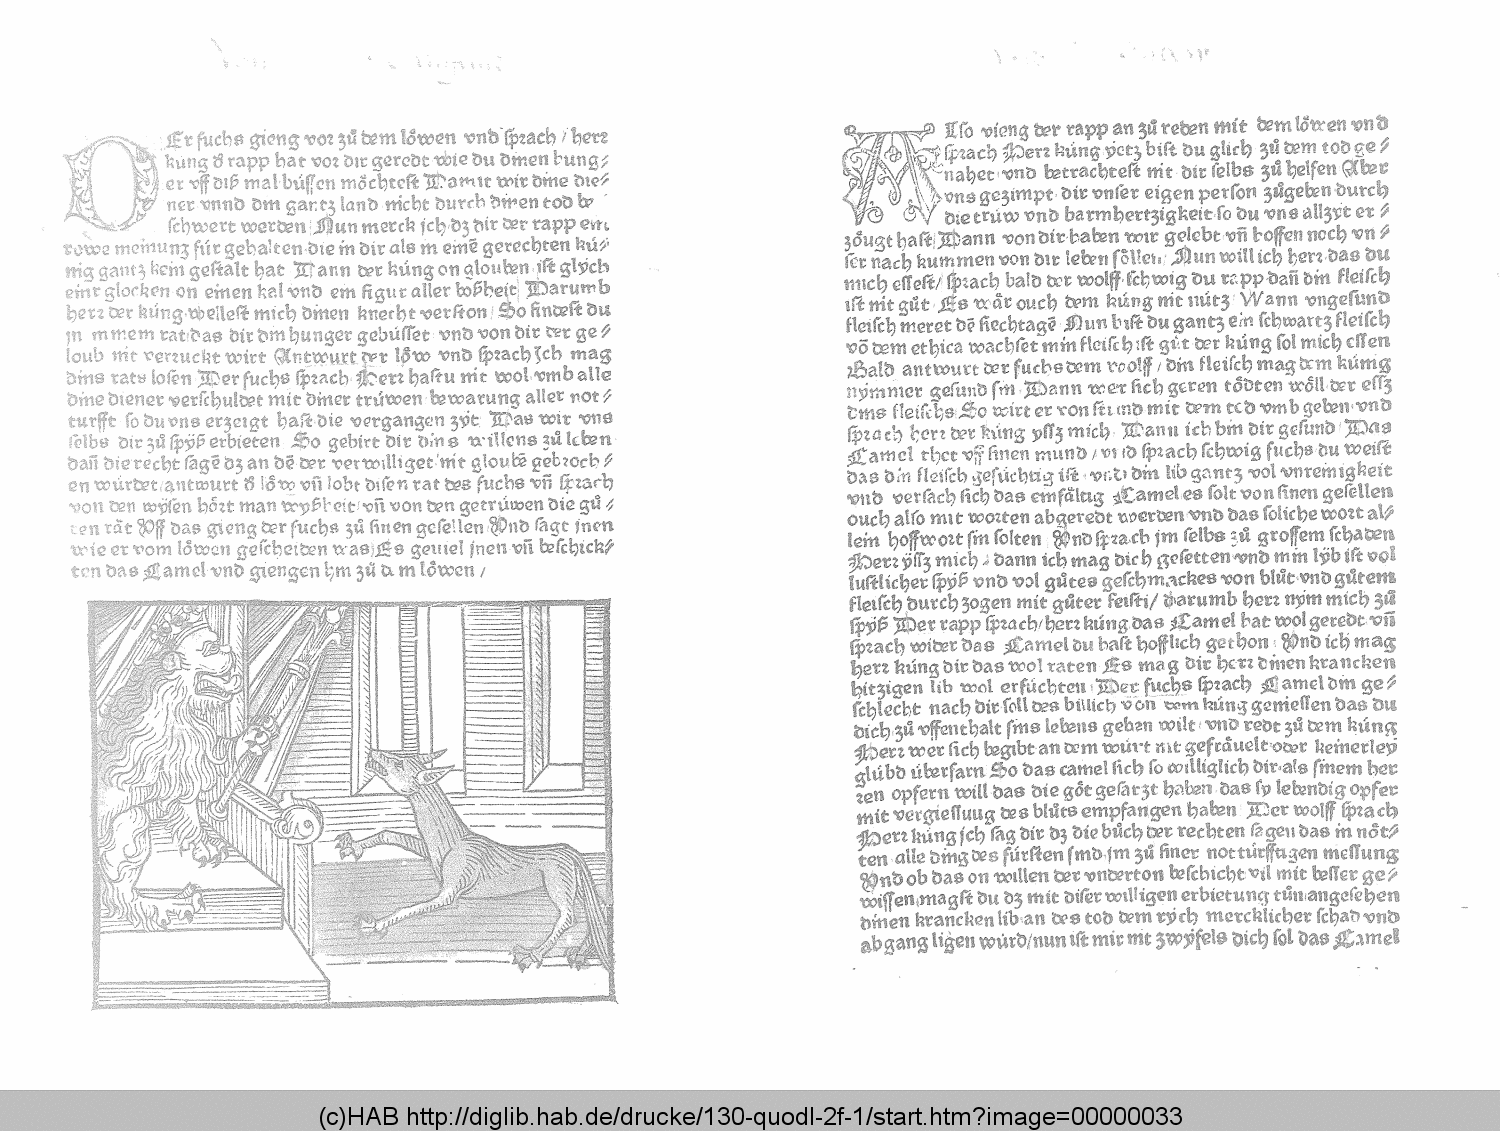 Er fuchs gieng vor zů dem löwen vnd sprach / herr
kung d̕ rapp hat vor dir geredt wie du dinen hung⸗
er vff diß mal büssen möchtest Damit wir dine die⸗
ner vnnd din gantz land nicht durch dinen tod be
schwert werden Nun merck ich dz dir der rapp ein
meinung für gehalten die in dir als in einē gerechten kü⸗
nig gantz kein gestalt hat Dann der küng on glouben ist glych
einr glocken on einen kal vnd ein figur aller boßheit Darumb
herr der küng wellest mich dinen knecht verston So findest du
in minem rat das dir din hunger gebüsset vnd von dir der ge⸗
loub nit verzuckt wirt Antwurt der löw vnd sprach Ich mag
dins rats losen Der fuchs sprach Herr hastu nit wol vmb alle
dine diener verschuldet mit diner trüwen bewarung aller not⸗
turfft so du vns erzeigt hast die vergangen zyt Das wir vns
selbs dir zů spyß erbieten So gebirt dir dins willens zů leben
dañ die recht sagē dz an dē der verwilliget nit gloubē gebroch⸗
en würdet antwurt d̕ löw vñ lobt disen rat des fuchs vñ sprach
von den wysen hört man wyßheit vñ von den getrüwen die gů⸗
ten rät Vff das gieng der fuchs zů sinen gesellen Vnd sagt jnen
wie er vom löwen gescheiden was Es geuiel jnen vñ beschick⸗
ten das Camel vnd giengen hin zů dem löwen /
Also vieng der rapp an zů reden mit dem löwen vnd
sprach Herr küng yetz bist du glich zů dem tod ge⸗
nahet vnd betrachtest nit dir selbs zů helfen Aber
vns gezimpt dir vnser eigen person zůgeben durch
die trüw vnd barmhertzigkeit so du vns allzyt er⸗
zöugt hast Dann von dir haben wir gelebt vñ hoffen noch vn⸗
ser nach kummen von dir leben söllen Nun will ich herr das du
mich essest / sprach bald der wolff schwig du rapp dañ din fleisch
ist nit gůt Es wär ouch dem küng nit nütz Wann vngesund
fleisch meret dē siechtagē Nun bist du gantz ein schwartz fleisch
vō dem ethica wachset min fleisch ist gůt der küng sol mich essen
Bald antwurt der fuchs dem wolff / din fleisch mag dem küing
nymmer gesund sin Dann wer sich geren tödten wöll der essz
dins fleischs So wirt er von stund mit dem tod vmb geben vnd
sprach herr der küng yssz mich Dann ich bin dir gesund Das
Camel thet vff sinen mund / vnd sprach schwig fuchs du weist
das din fleisch gesüchtig ist vnd din lib gantz vol vnreinigkeit
vnd versach sich das einfältig Camel es solt von sinen gesellen
ouch also mit worten abgeredt werden vnd das soliche wort al⸗
lein hoffwort sin solten Vnd sprach im selbs zů grossem schaden
Herr yssz mich / dann ich mag dich gesetten vnd min lyb ist vol
lustlicher spyß vnd vol gůtes geschmackes von blůt vnd gůtem
fleisch durchzogen mit gůter feisti / darumb herr nym mich zů
spyß Der rapp sprach / herr küng das Camel hat wol geredt vñ
sprach wider das Camel du hast hofflich gethon Vnd ich mag
herr küng dir das wol raten Es mag dir herr dinen krancken
hitzigen lib wol erfüchten Der fuchs sprach Camel din ge⸗
schlecht nach dir soll des billich von dem küng geniessen das du
dich zů vffenthalt sins lebens geben wilt vnd redt zů dem küng
Herr wer sich begibt an dem würt nit gefräuelt oder keinerley
glübd überfarn So das camel sich so williglich dir als sinem her
ren opfern will das die göt gesatzt haben das sy lebendig opfer
mit vergiessuug des blůts empfangen haben Der wolff sprach
Herr küng ich sag dir dz die bůch der rechten sagen das in nöt⸗
ten alle ding des fürsten sind im zů siner notturfftigen messung
Vnd ob das on willen der vnderton beschicht vil mit besser ge⸗
wissen magst du dz mit diser willigen erbietung tůn angesehen
dinen krancken lib an des tod dem rych mercklicher schad vnd
abgang ligen würd / nun ist mir nit zwyfels dich sol das Camel
(c)HAB http://diglib.hab.de/drucke/130-quodl-2f-1/start.htm?image=00000033